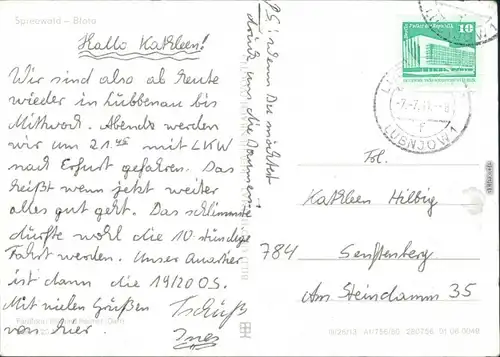 Spreewald - Błota
Hallo Kathleen!
Wir sind also ab heute
wieder in Lübbenau bis
Mittwoch. Abends werden
wir um 21.45 mit LKW
nach Erfurt gefahren. Das
heißt wenn jetzt weiter
alles gut geht. Das schlimmste
dürfte wohl die 10-stündige
Fahrt werden. Unser Quartier
ist dann die 19/20 OS.
Mit vielen Grüßen Tschüß
von hier. Ines
PS: wenn Du möchtest
drück uns die Daumen!
10
LUBNJOW 1
F
Frl.
Kathleen Hilbig
784 Senftenberg
Am Steindamm 35
A1/756/80 280756 01 06 0048